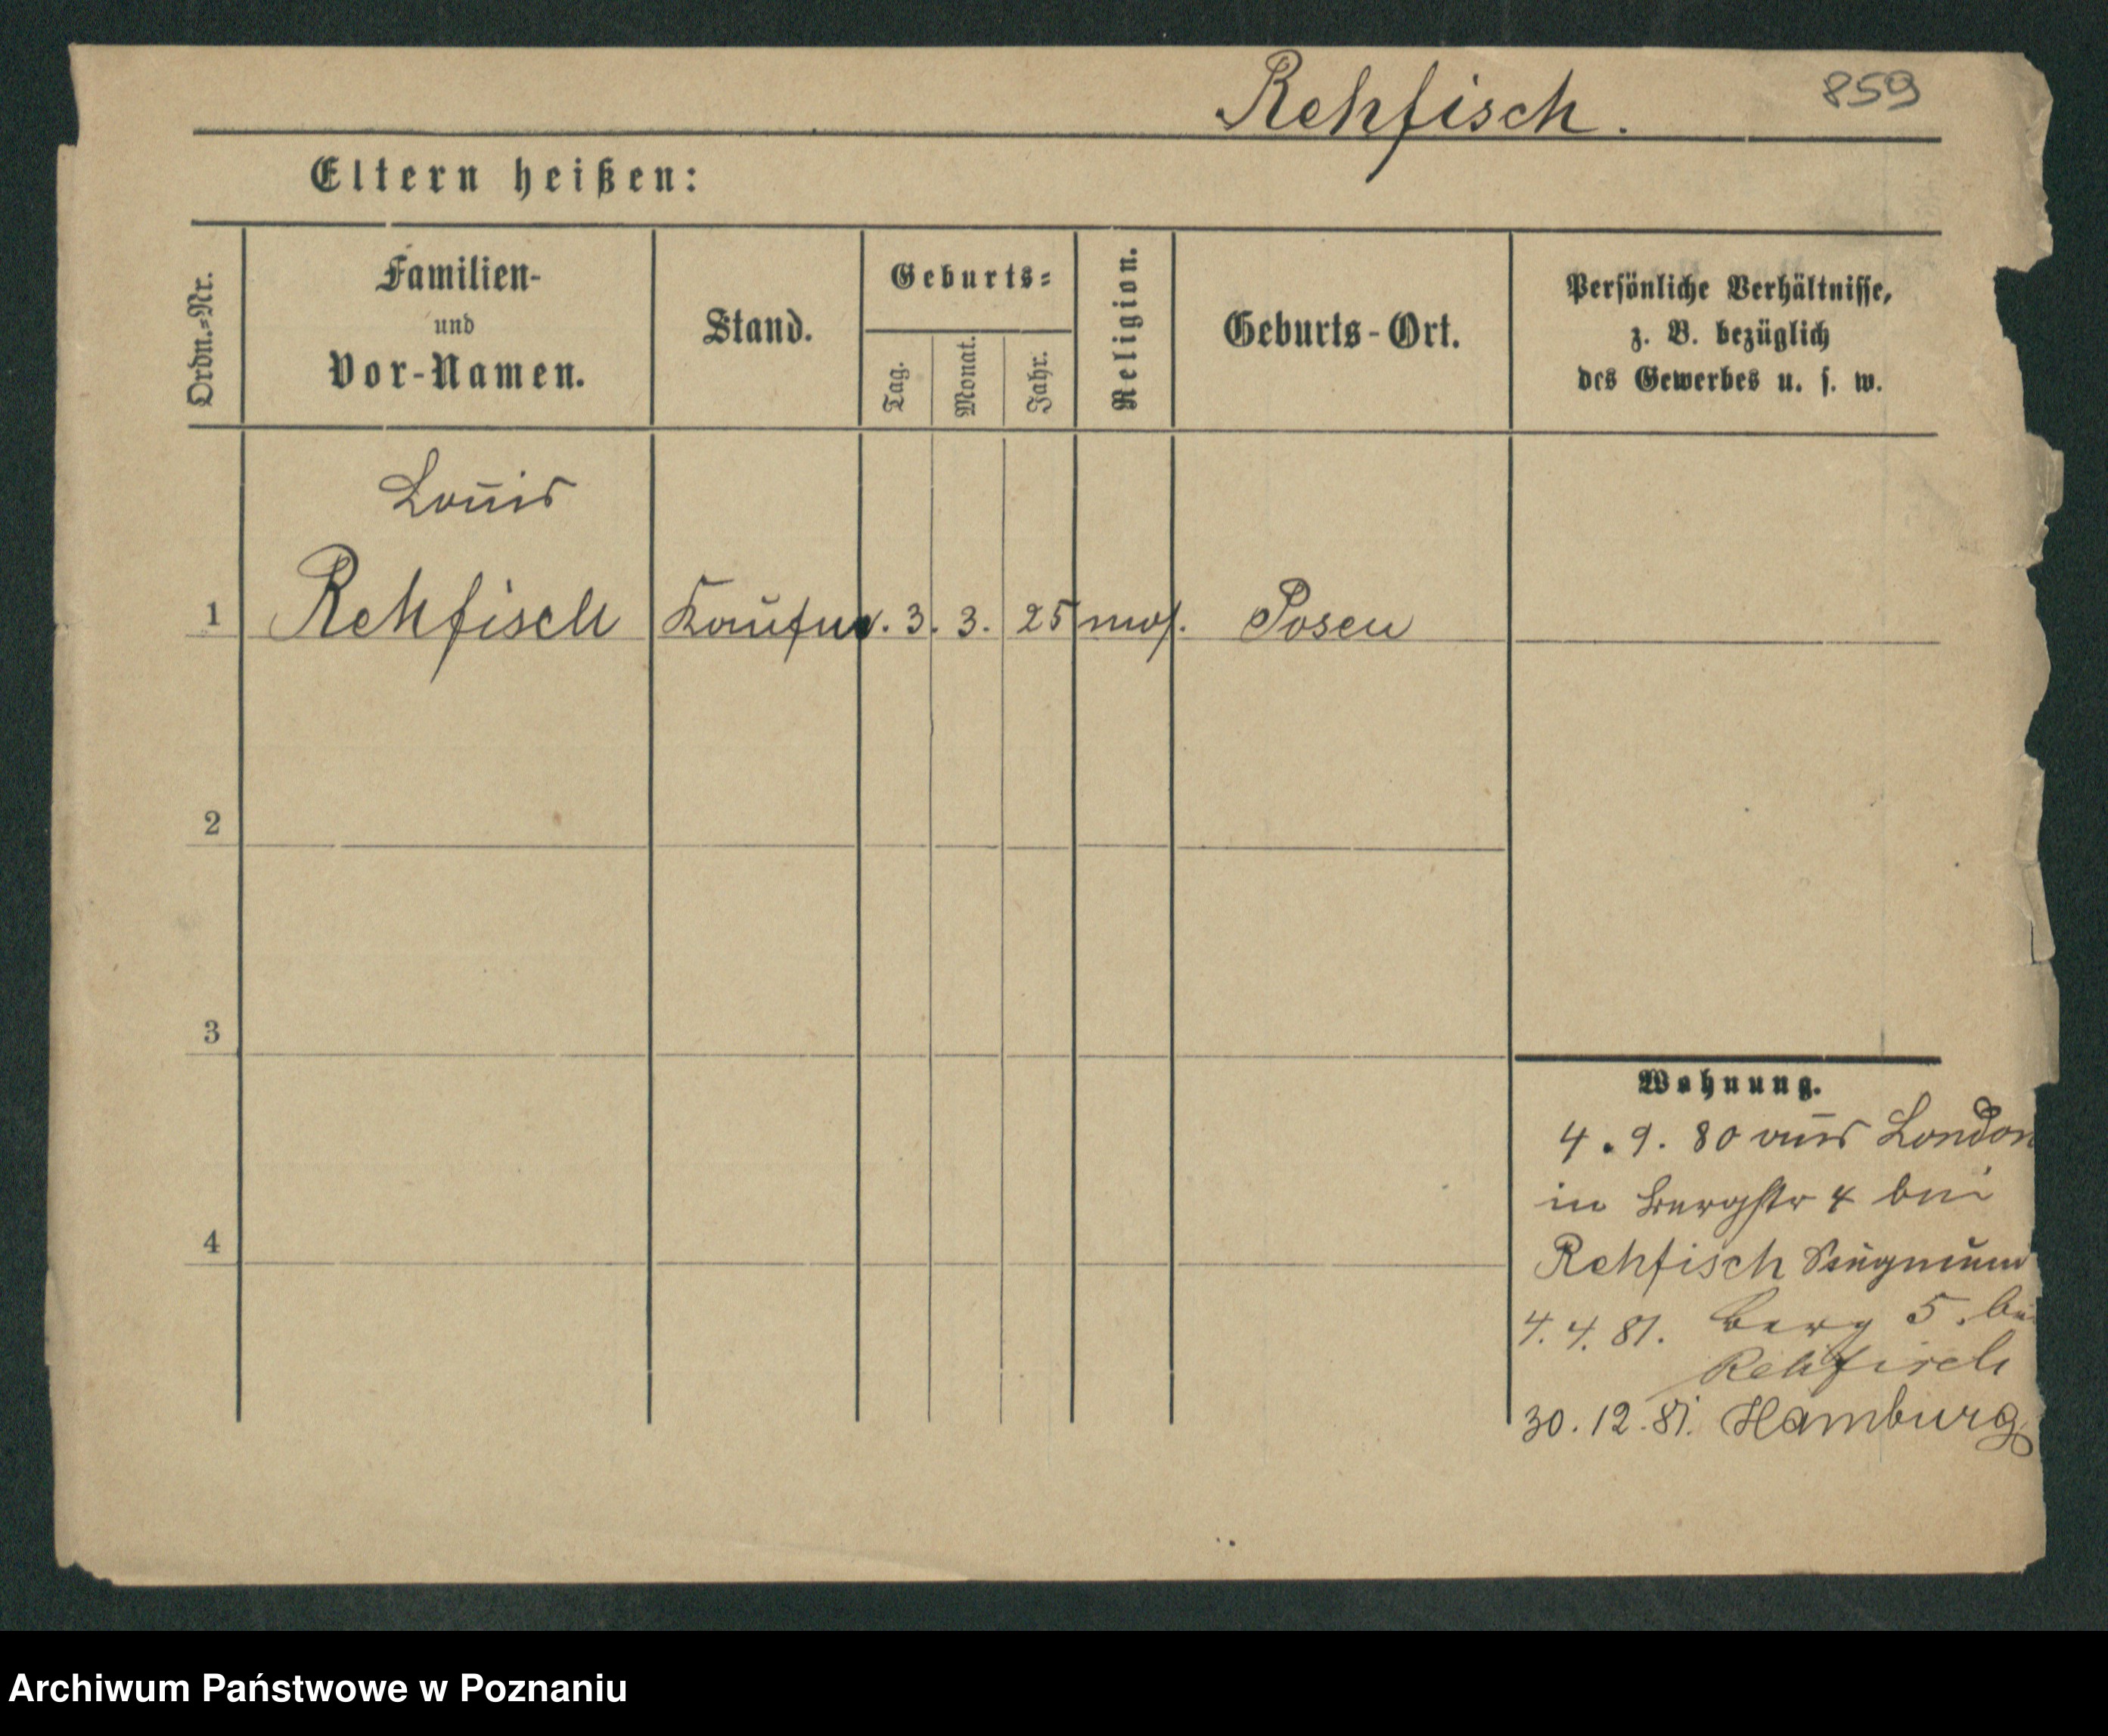 859
Rehfisch.
Eltern heißen:
Ordn.-Nr.
Familien-
und
Vor-Namen.
Stand.
Geburts-
Tag.
Monat.
Jahr.
Religion.
Geburts-Ort.
Persönliche Verhältnisse,
z. B. bezüglich
des Gewerbes u. s. w.
Louis
1 Rehfisch Kaufm. 3. 3. 25 mos. Posen
2
3
4
Wohnung.
4. 9. 80 aus London
in Bergstr 4 bei
Rehfisch
4. 4. 81. Berg 5. bei
Rehfisch
30. 12. 81. Hamburg
Archiwum Państwowe w Poznaniu